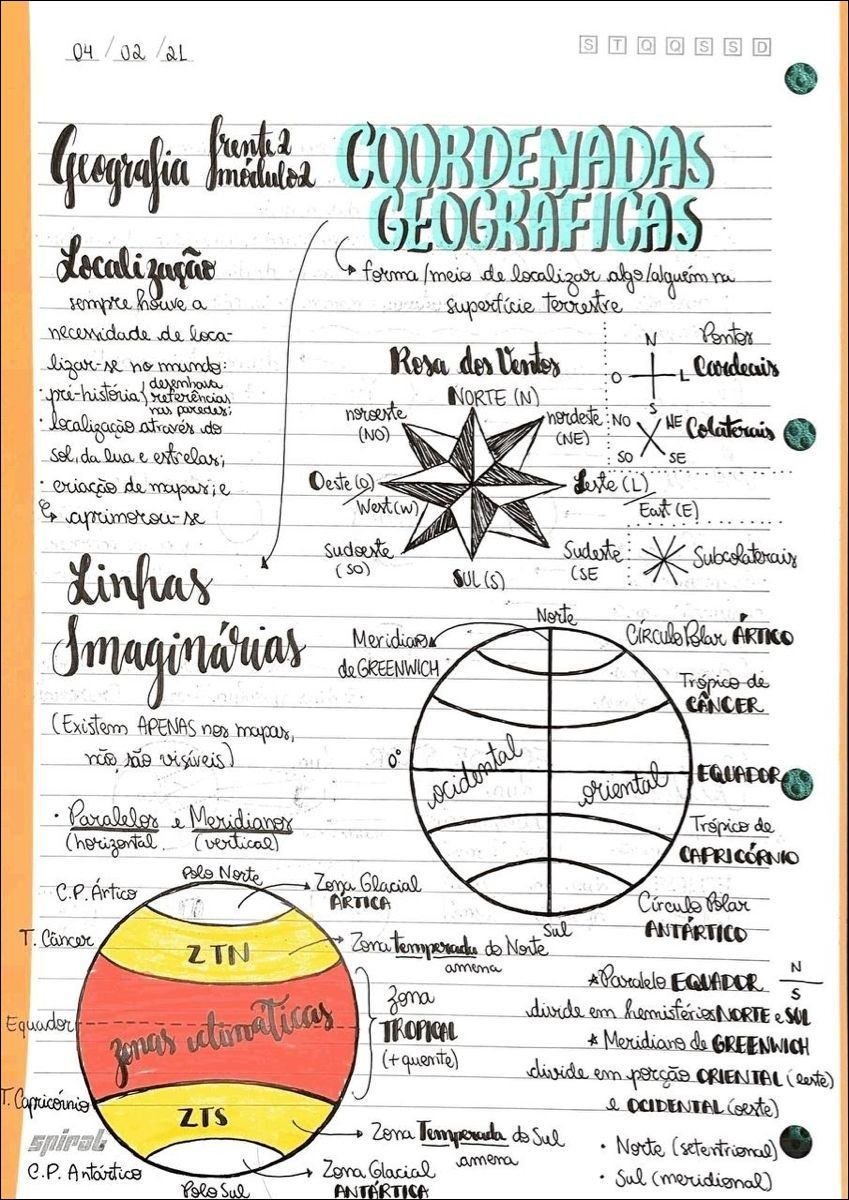 04 / 02 / 21
S T Q Q S S D
Geografia frente 2
módulo 2
COORDENADAS
GEOGRÁFICAS
forma/meio de localizar algo/alguém na
superfície terrestre
Localização
sempre houve a
necessidade de loca-
lizar-se no mundo:
· pré-história { desenhava
referências
nas paredes;
· localização através do
sol, da lua e estrelas;
· criação de mapas; e
aprimorou-se
Rosa dos Ventos
NORTE (N)
noroeste
(NO)
nordeste
(NE)
Oeste (O)
West (W)
Leste (L)
East (E)
Sudoeste
(SO)
SUL (S)
Sudeste
(SE
Pontos
Cardeais
N
O
L
S
Colaterais
NO
NE
SO
SE
Subcolaterais
Linhas
Imaginárias
(Existem APENAS nos mapas,
não são visíveis)
· Paralelos e Meridianos
(horizontal (vertical)
Norte
Meridiano
de GREENWICH
Círculo Polar ÁRTICO
Trópico de
CÂNCER
0°
ocidental
oriental
EQUADOR
Trópico de
CAPRICÓRNIO
Círculo Polar
ANTÁRTICO
Sul
Polo Norte
C.P. Ártico
Zona Glacial
ÁRTICA
T. Câncer
ZTN
Zona temperada do Norte
amena
Equador
zonas climáticas
zona
TROPICAL
(+ quente)
T. Capricórnio
ZTS
Zona Temperada do Sul
amena
spiral
C.P. Antártico
Polo Sul
Zona Glacial
ANTÁRTICA
* Paralelo EQUADOR
N
S
divide em hemisférios NORTE e SUL
* Meridiano de GREENWICH
divide em porção ORIENTAL (leste)
e OCIDENTAL (oeste)
· Norte (setentrional)
· Sul (meridional)